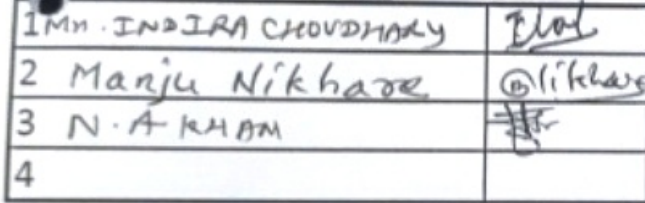 1 Mn. INDIRA CHOUDHARY
2 Manju Nikhare Nikhare
3 N. A KHAN
4